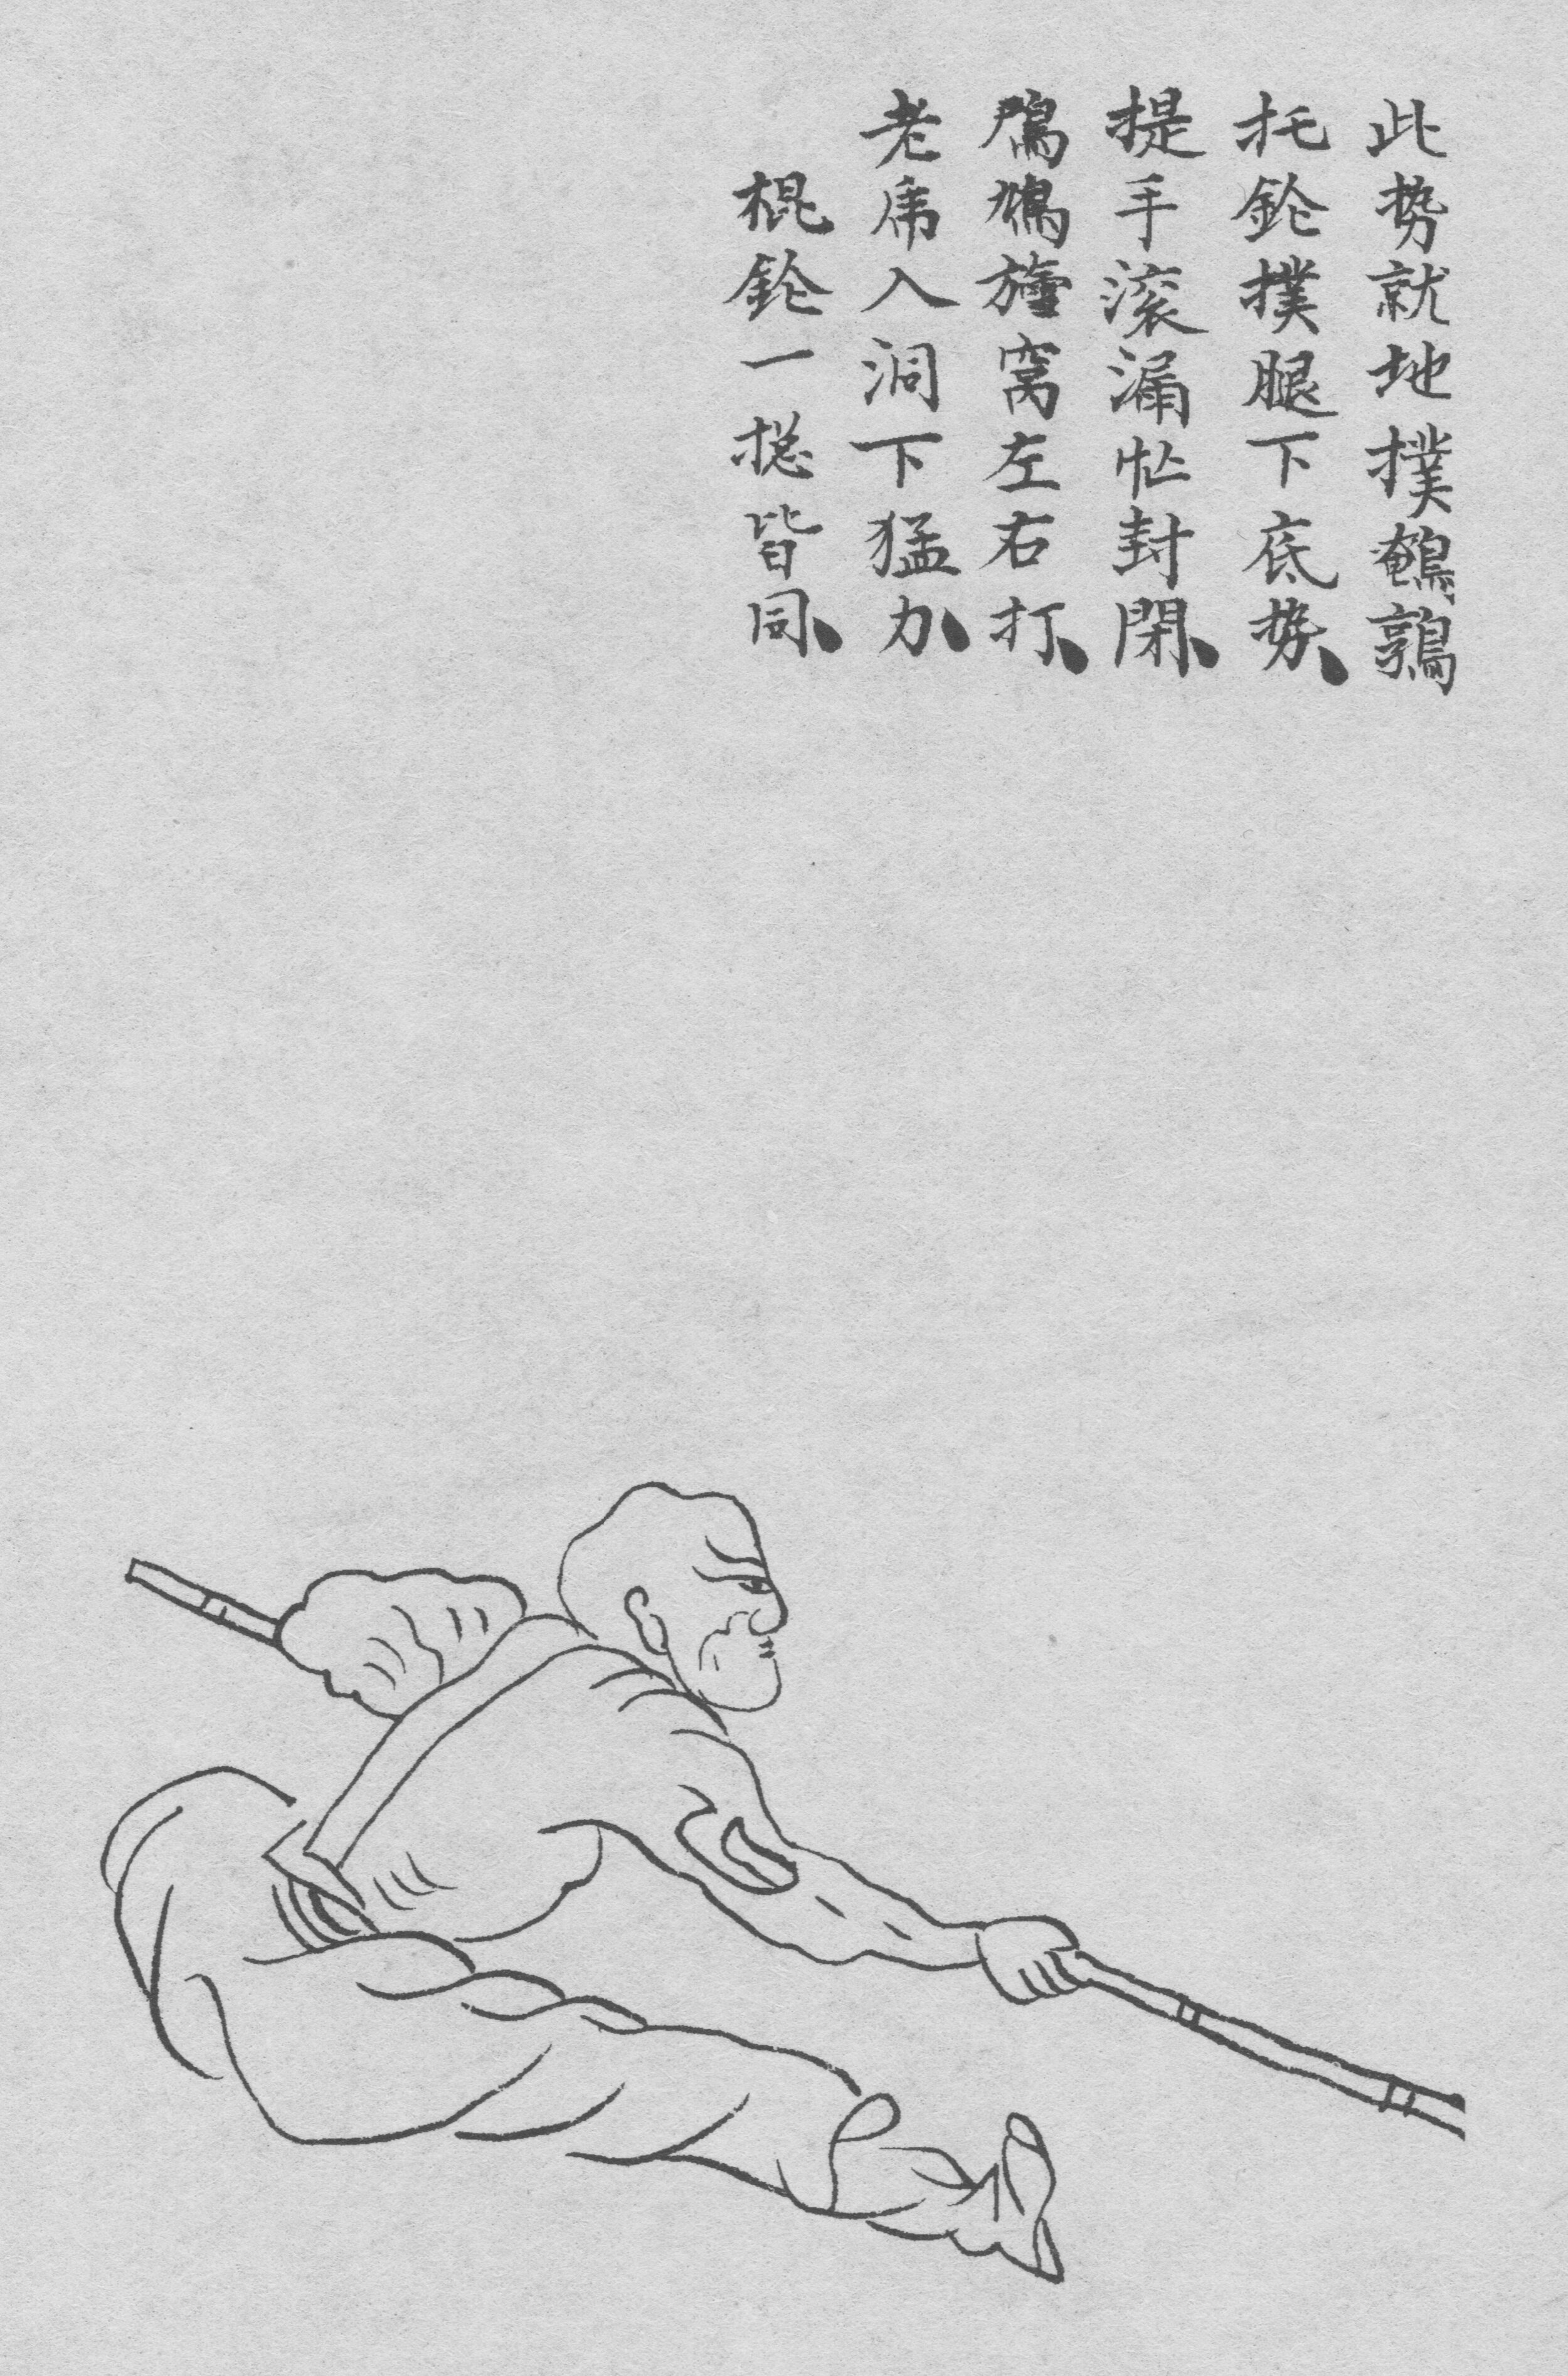 此势就地撲鵪鶉
托鎗撲腿下底势、
提手滚漏忙封閉、
窩左右打、
老虎入洞下猛力、
棍鎗一捴皆同、